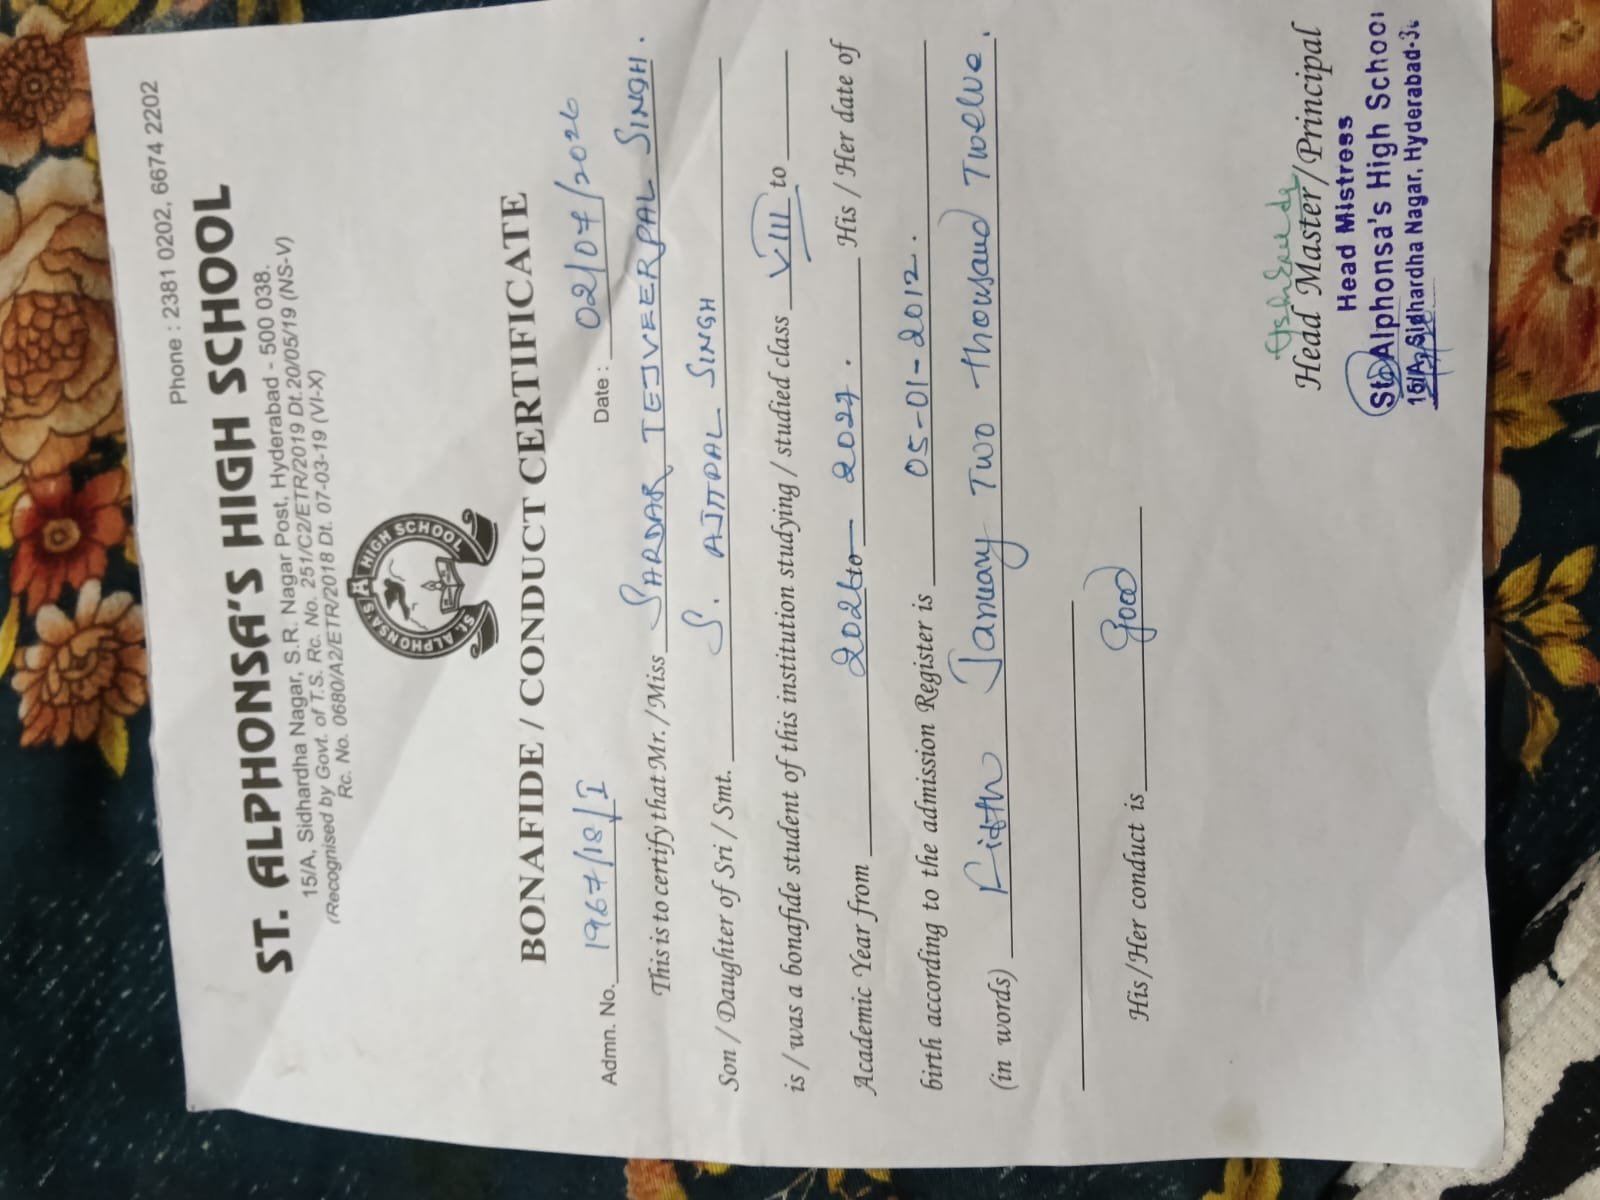 Phone : 2381 0202, 6674 2202
ST. ALPHONSA'S HIGH SCHOOL
15/A, Sidhardha Nagar, S.R. Nagar Post, Hyderabad - 500 038.
(Recognised by Govt. of T.S. Rc. No. 251/C2/ETR/2019 Dt.20/05/19 (NS-V)
Rc. No. 0680/A2/ETR/2018 Dt. 07-03-19 (VI-X)
ST. ALPHONSA'S HIGH SCHOOL
BONAFIDE / CONDUCT CERTIFICATE
Admn. No. 1967/18/I Date : 02/07/2026
This is to certify that Mr. / Miss SARDAR TEJVEERPAL SINGH.
Son / Daughter of Sri / Smt. S. AJITPAL SINGH
is / was a bonafide student of this institution studying / studied class VIII to
Academic Year from 2026 to 2027. His / Her date of
birth according to the admission Register is 05-01-2012.
(in words) Fifth January Two thousand Twelve.
His / Her conduct is Good
Head Master / Principal
Head Mistress
St. Alphonsa's High School
15/A, Sidhardha Nagar, Hyderabad-3